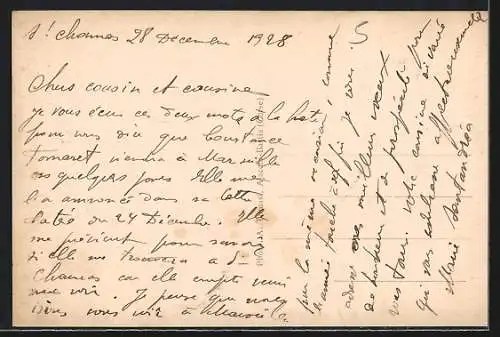 St Chamas 28 Décembre 1928
Chers cousin et cousine
Je vous écris ces deux mots à la hate
pour vous dire que Constance
viendra à Marseille
ces quelques jours Elle me
l'a annoncé dans sa lettre
datée du 24 Décembre. Elle
me prévient pour savoir
si elle me trouvera à St
Chamas car elle compte venir
me voir. Je pense que nous
irons vous voir à
par la même occasion, comme
l'année touche à sa fin je viens
meilleurs vœux
de bonheur et de prospérité pour
vous tous. Votre cousine
qui vous embrasse affectueusement
Marie